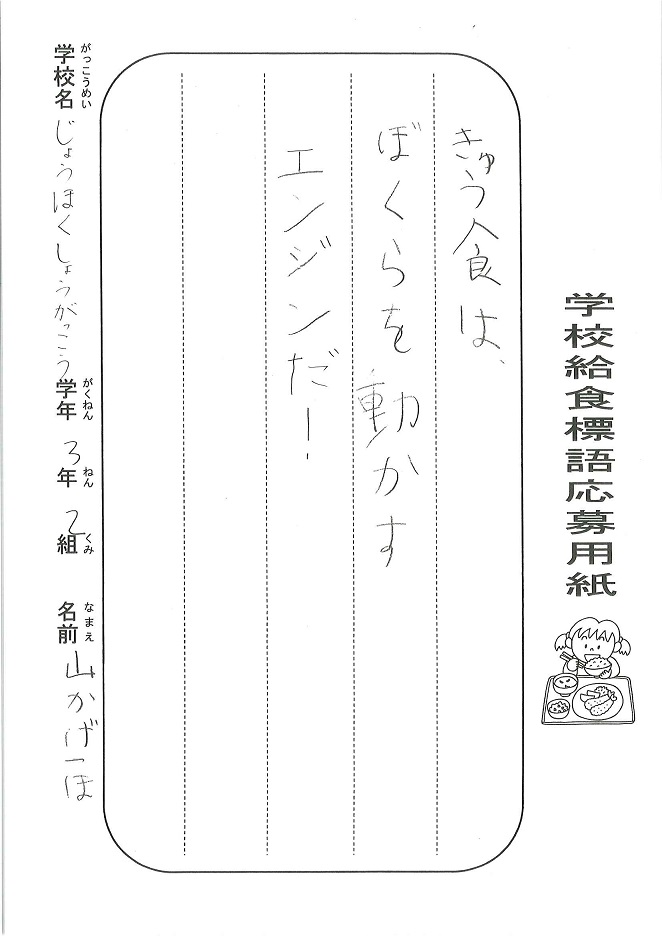 学校給食標語応募用紙
きゅう食は、
ぼくらを動かす
エンジンだー
がっこうめい
学校名 じょうほくしょうがっこう
がくねん
学年 3年 2組
ねん
くみ
なまえ
名前 山かげ一ほ